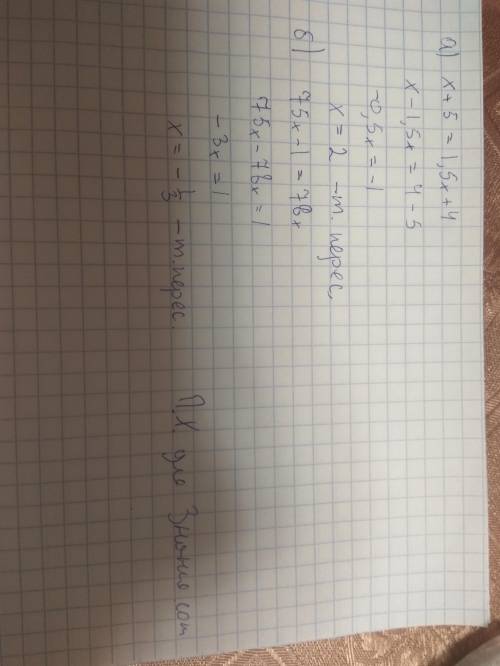 а) x + 5 = 1,5x + 4
x - 1,5x = 4 - 5
-0,5x = -1
x = 2 - т. перес.
б) 75x - 1 = 78x
75x - 78x = 1
- 3x = 1
x = - 1/3 - т. перес.
П.Х. для Знания com